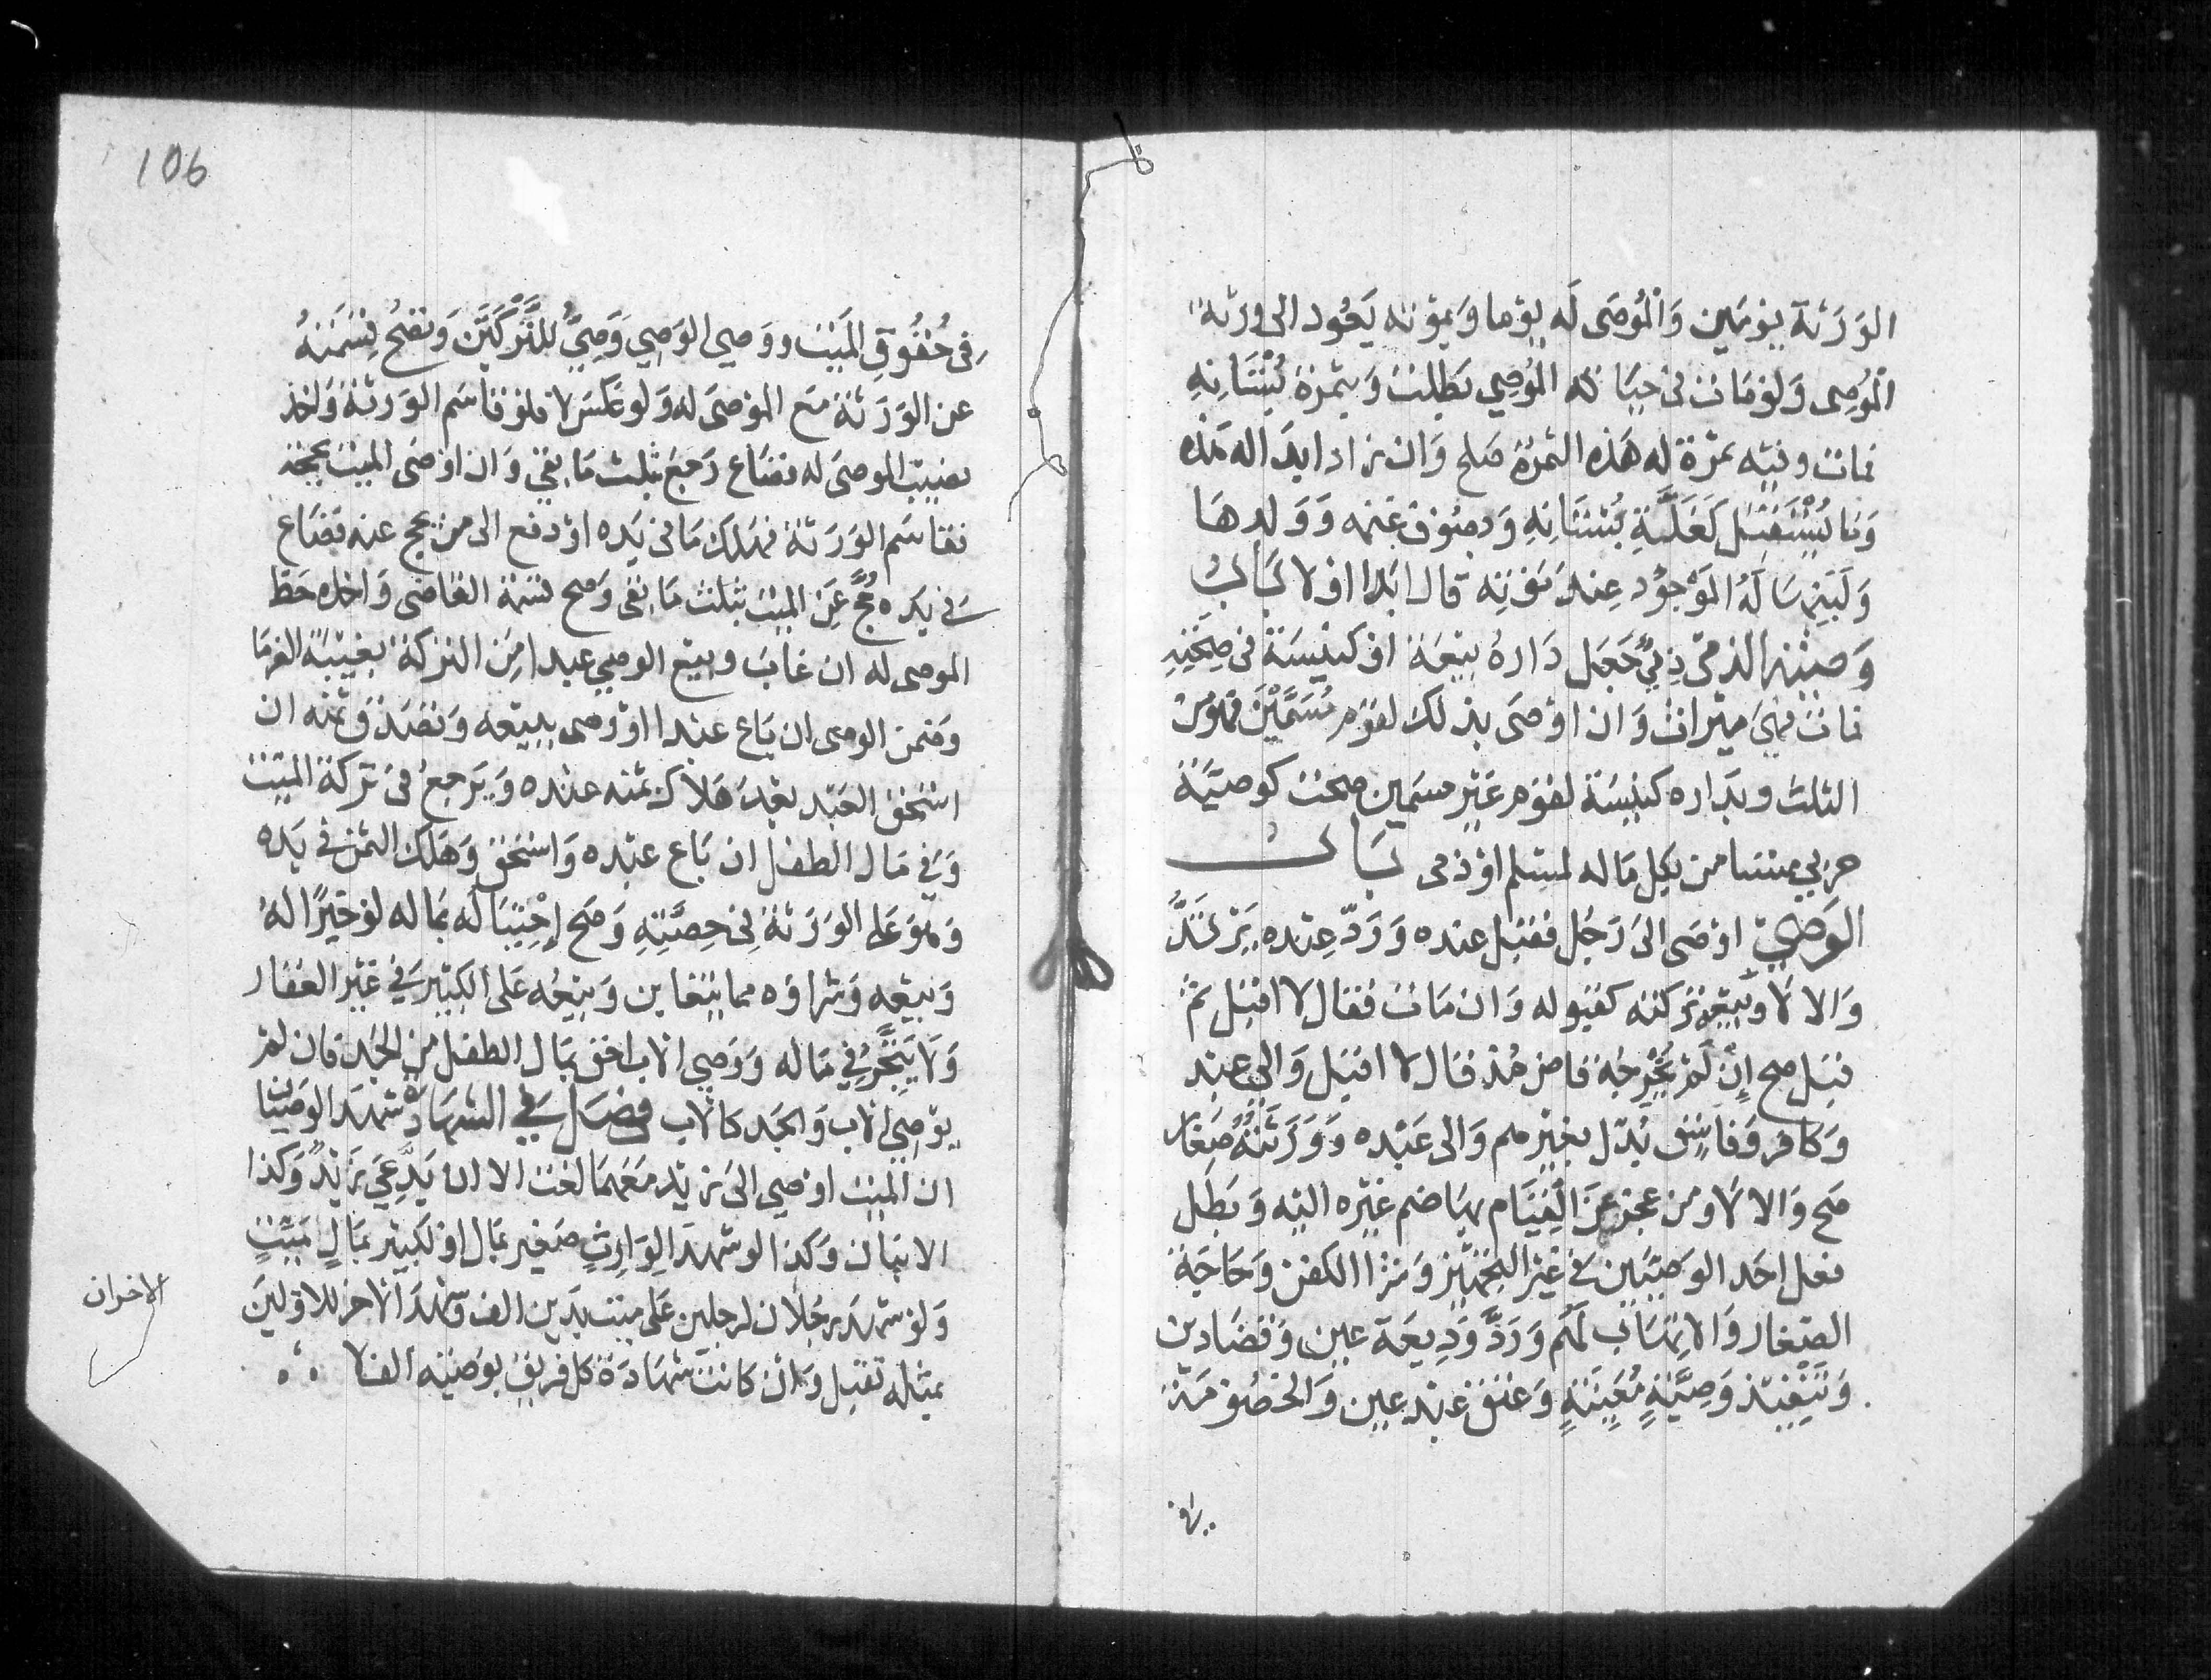 الورثة يومين والموصى له يوما وبموته يعود الى ورثة
الموصى ولو مات فى حياة الموصي بطلت وبثمرة بستانه
فمات وفيه ثمرة له هذه الثمرة صلح وان زاد ابدا له هذه
وما يستقبل كغلة بستانه وبصوف غنمه وولدها
ولبنها له الموجود عند موته قال ابدا اولا باب
وصية الذمى ذمي جعل داره بيعة او كنيسة فى صحته
فمات فهي ميراث وان اوصى بذلك لقوم مسمين فهو من
الثلث وبداره كنيسة لقوم غير مسمين صحت كوصية
حربي مستامن بكل ماله لمسلم او ذمى باب
الوصي اوصى الى رجل فقبل عنده ورد عنده يرتد
والا لا وبيعه تركته كقبوله وان مات فقال لا اقبل ثم
قبل صح ان لم يخرجه قاض مذ قال لا اقبل والى عبد
وكافر وفاسق بدل بغيرهم والى عبده وورثته صغار
صح والا لا ومن عجز عن القيام بها ضم غيره اليه وبطل
فعل احد الوصيين فى غير التجهيز وشرا الكفن وحاجة
الصغار والاتهاب لهم ورد وديعة عين وقضا دين
وتنفيذ وصية معينة وعتق عبد عين والخصومة
فى
فى حقوق الميت ووصي الوصي وصي للتركتين وتصح قسمته
عن الورثة مع الموصى له ولو عكس لا فلو قاسم الورثة واخذ
نصيب الموصى له فضاع رجع بثلث ما بقي وان اوصى الميت بحجة
فقاسم الورثة فهلك ما فى يده او دفع الى من يحج عنه فضاع
في يده حج عن الميت بثلث ما بقى وصح قسمة القاضى واخذه حظ
الموصى له ان غاب وبيع الوصي عبدا من التركة بغيبة الغرما
وضمن الوصى ان باع عبدا اوصى ببيعه وتصدق ثمنه ان
استحق العبد بعد هلاك ثمنه عنده ويرجع فى تركة الميت
وفي مال الطفل ان باع عبده واستحق وهلك الثمن في يده
وهو على الورثة في حصته وصح احتياله بماله لو خيرا له
وبيعه وشراؤه مما يتغابن وبيعه على الكبير في غير العقار
ولا يتجر في ماله ووصي الاب احق بمال الطفل من الجد فان لم
يوصي الاب والجد كالاب فصل في الشهادة شهد الوصيان
ان الميت اوصي الى زيد معهما لغت الا ان يدعي زيد وكذا
الابنان وكذا لو شهدا لوارث صغير بمال او لكبير بمال ميت
ولو شهد رجلان لرجلين على ميت بدين الف وشهد الاخر للاولين
بمثله تقبل وان كانت شهادة كل فريق بوصية الف لا
الاخران
106